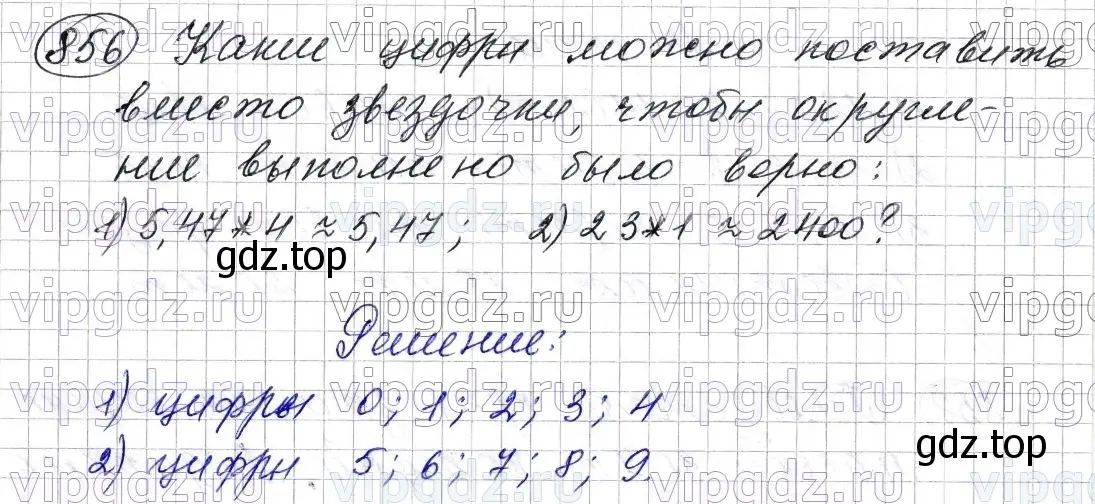 856 Какие цифры можно поставить
вместо звездочки, чтобы округле-
ние выполнено было верно:
1) 5,47*4 ≈ 5,47; 2) 23*1 ≈ 2400?
gdz.top
Решение:
1) цифры 0; 1; 2; 3; 4
2) цифры 5; 6; 7; 8; 9.
gdz.top
vipgdz.ru